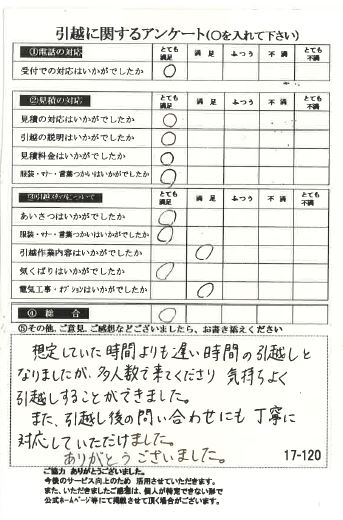 引越に関するアンケート(○を入れて下さい)
①電話の対応 とても満足 満足 ふつう 不満 とても不満
受付での対応はいかがでしたか ○
②見積の対応 とても満足 満足 ふつう 不満 とても不満
見積の対応はいかがでしたか ○
引越の説明はいかがでしたか ○
見積料金はいかがでしたか ○
服装・マナー・言葉つかいはいかがでしたか ○
③引越スタッフについて とても満足 満足 ふつう 不満 とても不満
あいさつはいかがでしたか ○
服装・マナー・言葉つかいはいかがでしたか ○
引越作業内容はいかがでしたか ○
気くばりはいかがでしたか ○
電気工事・オプションはいかがでしたか ○
④ 総 合 ○
⑤その他、ご意見、ご感想などございましたら、お書き添えください
想定していた時間よりも遅い時間の引越しと
なりましたが、多人数で来てくださり 気持ちよく
引越しすることができました。
また、引越し後の問い合わせにも丁寧に
対応していただけました。
ありがとうございました。
17-120
ご協力 ありがとうございました。
今後のサービス向上のため 活用させていただきます。
また、いただきましたご感想は、個人が特定できない形で
公式ホームページ等にて掲載させて頂く場合がございます。